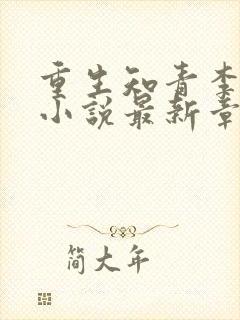 重生知青李
小说最新章
简大年